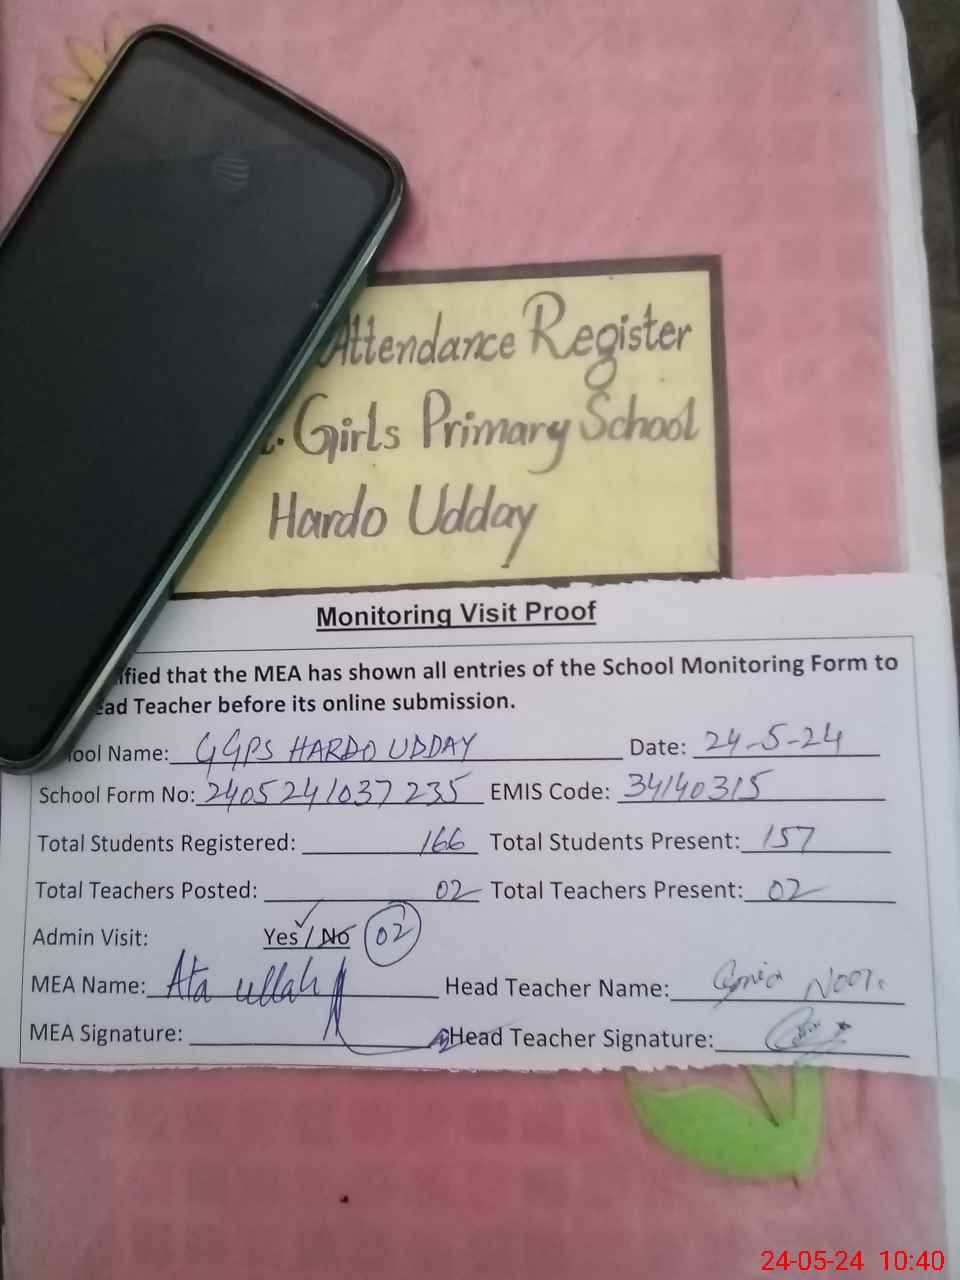 Attendance Register
. Girls Primary School
Hardo Udday
Monitoring Visit Proof
ified that the MEA has shown all entries of the School Monitoring Form to
ead Teacher before its online submission.
ool Name: GGPS HARDO UDDAY Date: 24-5-24
School Form No: 2405241037235 EMIS Code: 34140315
Total Students Registered: 166 Total Students Present: 157
Total Teachers Posted: 02 Total Teachers Present: 02
Admin Visit: Yes / No 02
MEA Name: Ata ullah Head Teacher Name: Noor
MEA Signature: Head Teacher Signature:
24-05-24 10:40